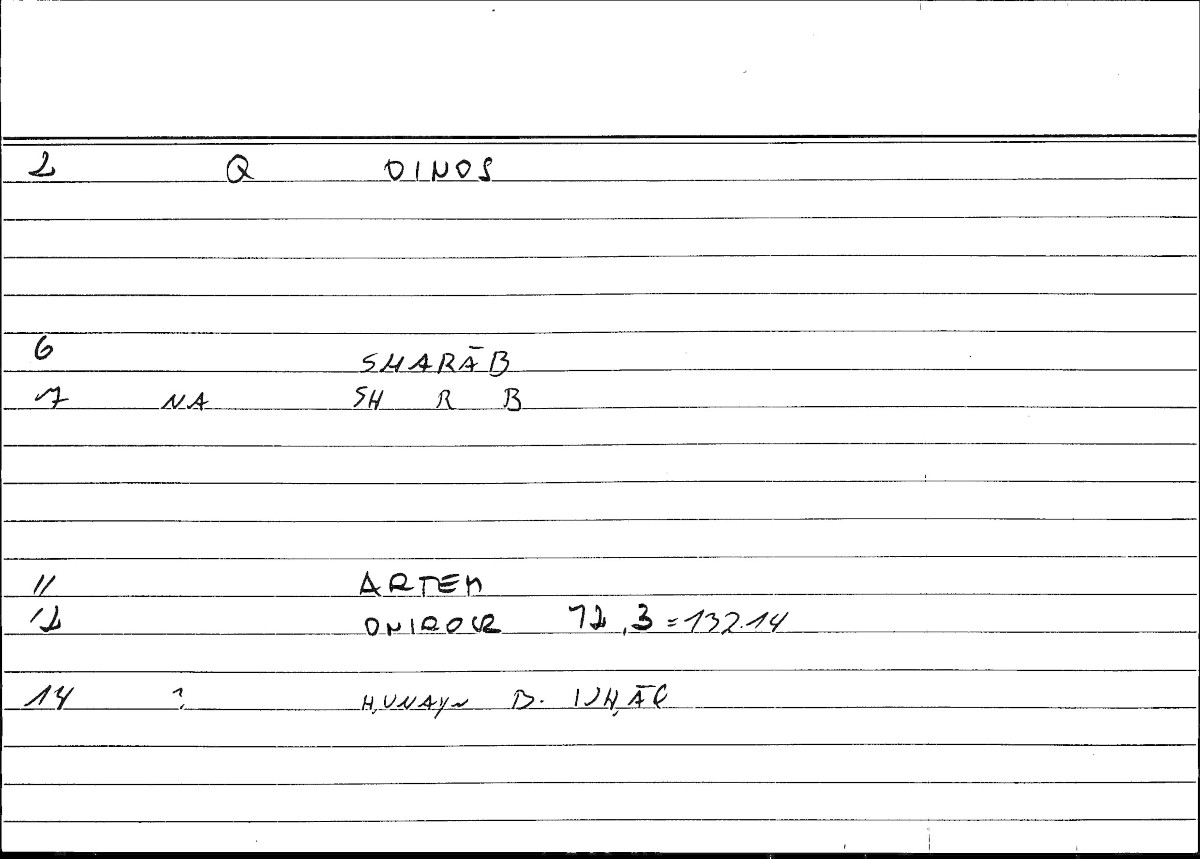 2 Q OINOS
6 SHARĀB
7 NA SH R B
11 ARTEM
12 ONIROCR 72,3 = 132.14
14 ? ḤUNAYN B. ISḤĀQ